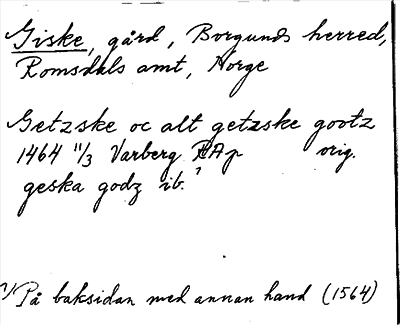 Giske, gård, Borgunds herred,
Romsdals amt, Norge
Getzske oc alt getzske gootz
1464 11/3 Varberg RAp orig.
geska godz ib.¹
¹) På baksidan med annan hand (1564)